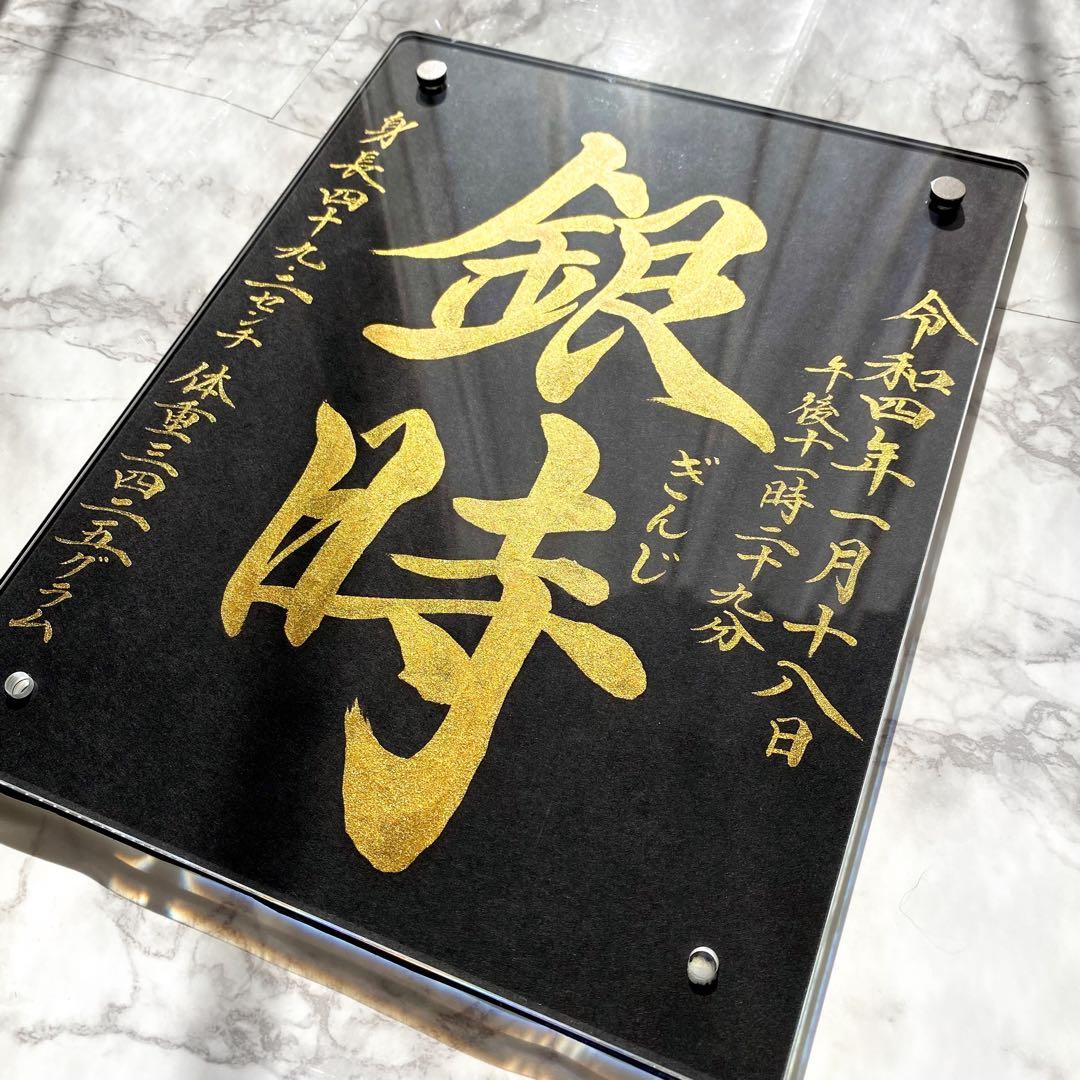 令和四年一月十八日
午後十一時二十九分
ぎんじ
銀時
身長四十九・二センチ 体重三四二五グラム